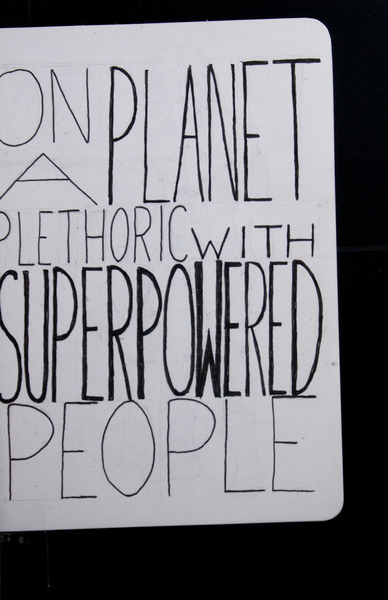 ON PLANET
A
PLETHORIC WITH
SUPERPOWERED
PEOPLE